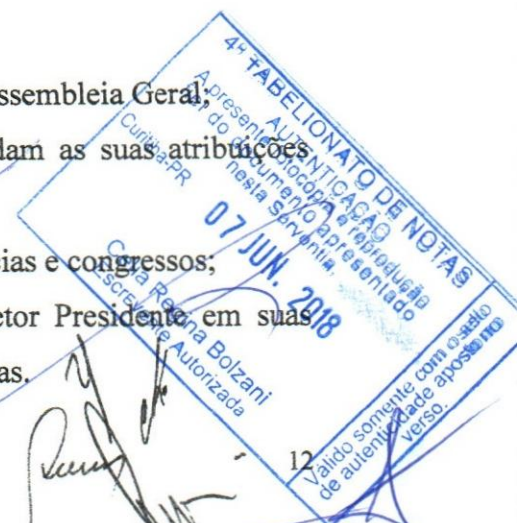 ssembleia Geral;
dam as suas atribuições
ias e congressos;
etor Presidente em suas
as.
12
4º TABELIONATO DE NOTAS
AUTENTICAÇÃO
A presente fotocópia é reprodução
fiel do documento apresentado
nesta Serventia.
Curitiba-PR
07 JUN. 2018
Regina Bolzani
Escrevente Autorizada
Válido somente com o selo
de autenticidade aposto no
verso.